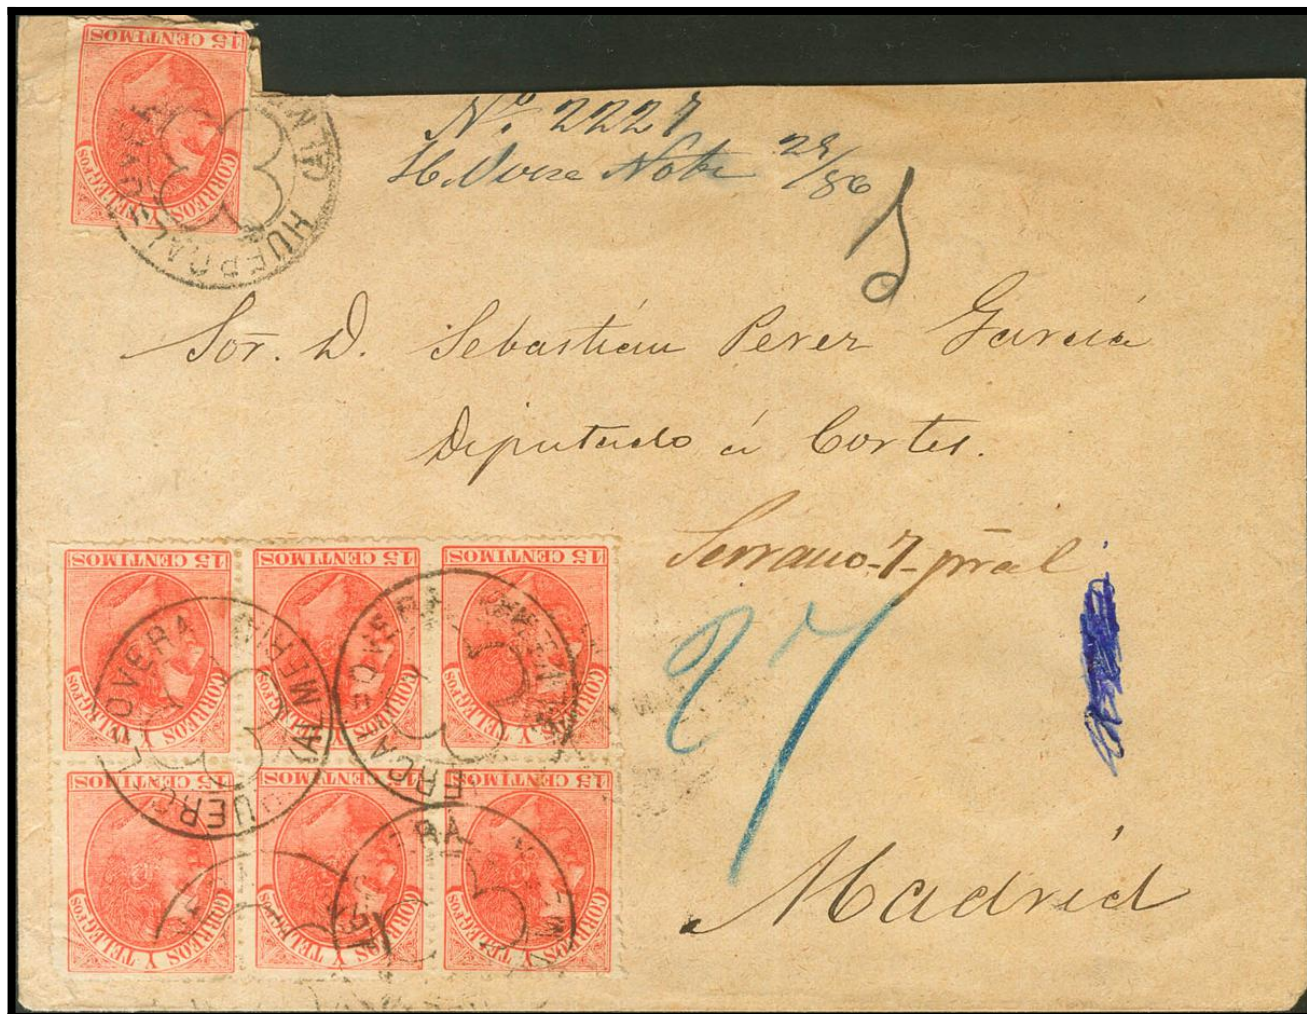 15 CENTIMOS
CORREOS Y TELEGFOS
HUERCAL
Nº. 2227
29/86
Sor. D. Sebastián Perez García
Diputado á Cortes.
Serrano-7-pral
27
Madrid
15 CENTIMOS 15 CENTIMOS 15 CENTIMOS
CORREOS Y TELEGFOS CORREOS Y TELEGFOS CORREOS Y TELEGFOS
HUERCAL OVERA (ALMERIA)
15 CENTIMOS 15 CENTIMOS 15 CENTIMOS
CORREOS Y TELEGFOS CORREOS Y TELEGFOS CORREOS Y TELEGFOS